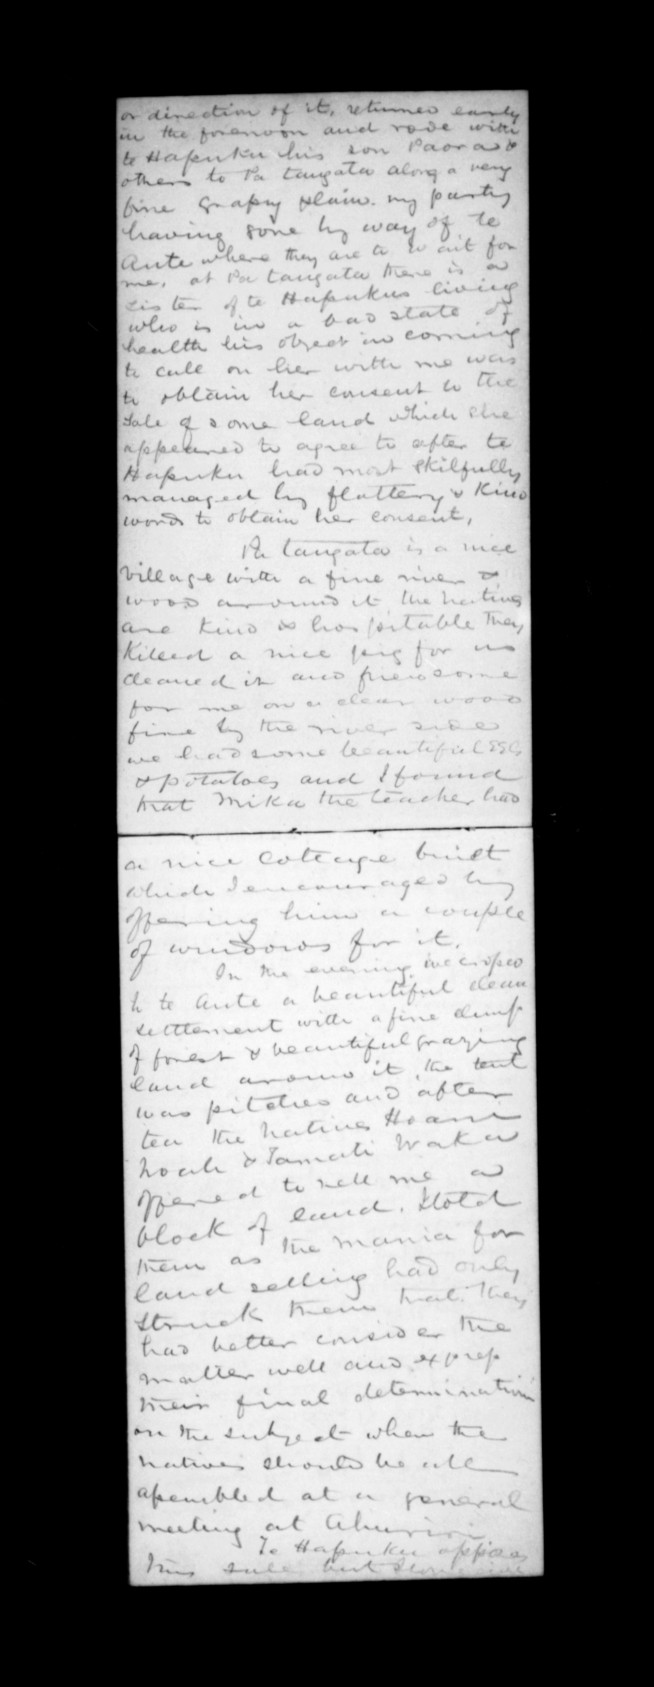 or direction of it, returned early
in the forenoon and rode with
te Hapuku his son Paora &
others to Pa tangata along a very
fine grassy plain. my party
having gone by way of te
Aute where they are to wait for
me, at Pa tangata there is a
sister of te Hapukus living
who is in a bad state of
health his object in coming
to call on her with me was
to obtain her consent to the
sale of some land which she
appeared to agree to after te
Hapuku had most skilfully
managed by flattery & kind
words to obtain her consent,
Pa tangata is a nice
village with a fine river &
wood around it the natives
are kind & hospitable they
killed a nice pig for us
cleaned it and fried some
for me on a clear wood
fire by the river side
we had some beautiful eggs
& potatoes and I found
that Mika the teacher had
a nice cottage built
which I encouraged by
offering him a couple
of windows for it.
In the evening we crossed
to te Aute a beautiful clean
settlement with a fine clump
of forest & beautiful grazing
land around it the tent
was pitched and after
tea the natives Hoani
Noah & Tamati Waka
offered to sell me a
block of land. I told
them as the mania for
land selling had only
struck them that they
had better consider the
matter well and express
their final determination
on the subject when the
natives should be all
assembled at a general
meeting at Ahuriri
Te Hapuku opposes
this sale but